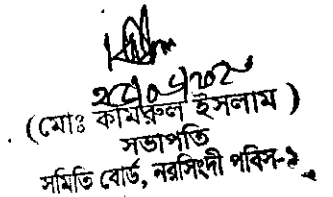 (মোঃ কামরুল ইসলাম)
সভাপতি
সমিতি বোর্ড, নরসিংদী পবিস-১